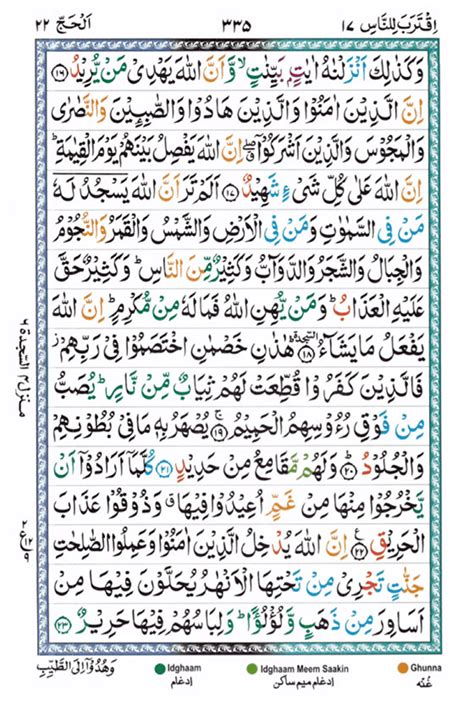 اِقْتَرَبَ لِلنَّاسِ ۱۷ ۳۳۵ اَلْحَجّ ۲۲
وَكَذٰلِكَ اَنْزَلْنٰهُ اٰيٰتٍۭ بَيِّنٰتٍ ۙ وَّاَنَّ اللّٰهَ يَهْدِىْ مَنْ يُّرِيْدُ ﴿۱۶﴾
اِنَّ الَّذِيْنَ اٰمَنُوْا وَالَّذِيْنَ هَادُوْا وَالصّٰبِـِٕيْنَ وَالنَّصٰرٰى
وَالْمَجُوْسَ وَالَّذِيْنَ اَشْرَكُوْۤا ۖ اِنَّ اللّٰهَ يَفْصِلُ بَيْنَهُمْ يَوْمَ الْقِيٰمَةِ ؕ
اِنَّ اللّٰهَ عَلٰى كُلِّ شَىْءٍ شَهِيْدٌ ﴿۱۷﴾ اَلَمْ تَرَ اَنَّ اللّٰهَ يَسْجُدُ لَهٗ
مَنْ فِى السَّمٰوٰتِ وَمَنْ فِى الْاَرْضِ وَالشَّمْسُ وَالْقَمَرُ وَالنُّجُوْمُ
وَالْجِبَالُ وَالشَّجَرُ وَالدَّوَآبُّ وَكَثِيْرٌ مِّنَ النَّاسِ ؕ وَكَثِيْرٌ حَقَّ
عَلَيْهِ الْعَذَابُ ؕ وَمَنْ يُّهِنِ اللّٰهُ فَمَا لَهٗ مِنْ مُّكْرِمٍ ؕ اِنَّ اللّٰهَ
يَفْعَلُ مَا يَشَآءُ ﴿۱۸﴾ السجدة هٰذٰنِ خَصْمٰنِ اخْتَصَمُوْا فِىْ رَبِّهِمْ
فَالَّذِيْنَ كَفَرُوْا قُطِّعَتْ لَهُمْ ثِيَابٌ مِّنْ نَّارٍ ؕ يُصَبُّ
مِنْ فَوْقِ رُءُوْسِهِمُ الْحَمِيْمُ ﴿۱۹﴾ يُصْهَرُ بِهٖ مَا فِىْ بُطُوْنِهِمْ
وَالْجُلُوْدُ ؕ ﴿۲۰﴾ وَلَهُمْ مَّقَامِعُ مِنْ حَدِيْدٍ ﴿۲۱﴾ كُلَّمَاۤ اَرَادُوْۤا اَنْ
يَّخْرُجُوْا مِنْهَا مِنْ غَمٍّ اُعِيْدُوْا فِيْهَا ۗ وَذُوْقُوْا عَذَابَ
الْحَرِيْقِ ﴿۲۲﴾ اِنَّ اللّٰهَ يُدْخِلُ الَّذِيْنَ اٰمَنُوْا وَعَمِلُوا الصّٰلِحٰتِ
جَنّٰتٍ تَجْرِىْ مِنْ تَحْتِهَا الْاَنْهٰرُ يُحَلَّوْنَ فِيْهَا مِنْ
اَسَاوِرَ مِنْ ذَهَبٍ وَّلُؤْلُؤًا ؕ وَلِبَاسُهُمْ فِيْهَا حَرِيْرٌ ﴿۲۳﴾
السجدة ۶
منزل ۴
وَهُدُوْۤا اِلَى الطَّيِّبِ
Idghaam Idghaam Meem Saakin Ghunna
اِدغام اِدغام میم ساکن غُنّه